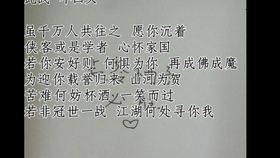 虽千万人共往之 愿你沉着
侠客或是学者 心怀家国
若你安好则 何惧为你 再成佛成魔
为迎你载誉归来 山河为贺
苦难何妨杯酒 一笑而过
若非冠世一战 江湖何处寻你我